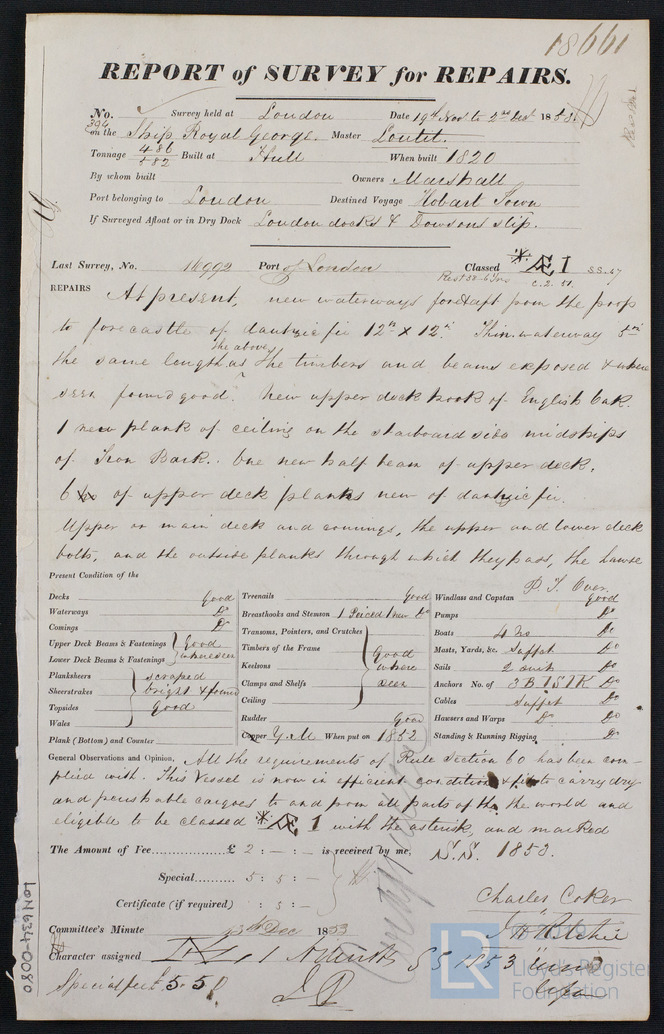 18661
REPORT of SURVEY for REPAIRS.
No. 394 Survey held at London Date 19th Nov to 2nd Dec 1853
on the Ship Royal George. Master Loutit.
Tonnage 486 582 Built at Hull When built 1820
By whom built Owners Marshall
Port belonging to London Destined Voyage Hobart Town
If Surveyed Afloat or in Dry Dock London docks & Dowsons slip.
Last Survey, No. 16992 Port of London Classed *Æ I S.S. 47
Rest 38-6 Yrs C. 2. 51.
REPAIRS At present, new waterways for & aft from the poop
to forecastle of dantzic fir 12in x 12in. Thin waterway 5in
the same length as the above, the timbers and beams exposed & where
seen found good. New upper deck hook of English Oak.
1 new plank of ceiling on the starboard side midships
of Iron Bark. One new half beam of upper deck.
6 No of upper deck planks new of dantzic fir.
Upper or main deck and comings, the upper and lower deck
bolts, and the outside planks through which they pass, the hawse
P. T. Over.
Present Condition of the
Decks good Treenails good Windlass and Capstan good
Waterways Do Breasthooks and Stemson 1 Pieced 1 new Do Pumps Do
Comings Do Transoms, Pointers, and Crutches Boats 4 No Do
Upper Deck Beams & Fastenings Good Timbers of the Frame Good Masts, Yards, &c. Suffct Do
Lower Deck Beams & Fastenings where seen Keelsons where Sails 2 suit Do
Planksheers scraped Clamps and Shelfs seen Anchors No. of 3 B 1 S 1 K Do
Sheerstrakes bright & found Ceiling Cables Suffct Do
Topsides Good Rudder Good Hawsers and Warps Do Do
Wales Copper Y.M When put on 1852 Standing & Running Rigging Do
Plank (Bottom) and Counter
General Observations and Opinion, All the requirements of Rule Section 60 has been com-
plied with. This Vessel is now in efficient condition & fit to carry dry
and perishable cargoes to and from all parts of the world and
eligible to be classed *Æ I with the asterisk, and marked
S.S. 1853.
The Amount of Fee £ 2 : - : - is received by me,
Special 5 : 5 : -
Certificate (if required) : 5 : -
Charles Coker
J. H. Ritchie
Committee's Minute 13th Dec 1853
Character assigned Æ 1 SS 1853
Special fee £5.5.0
LON634-0080
LR
Lloyd's Register
Foundation